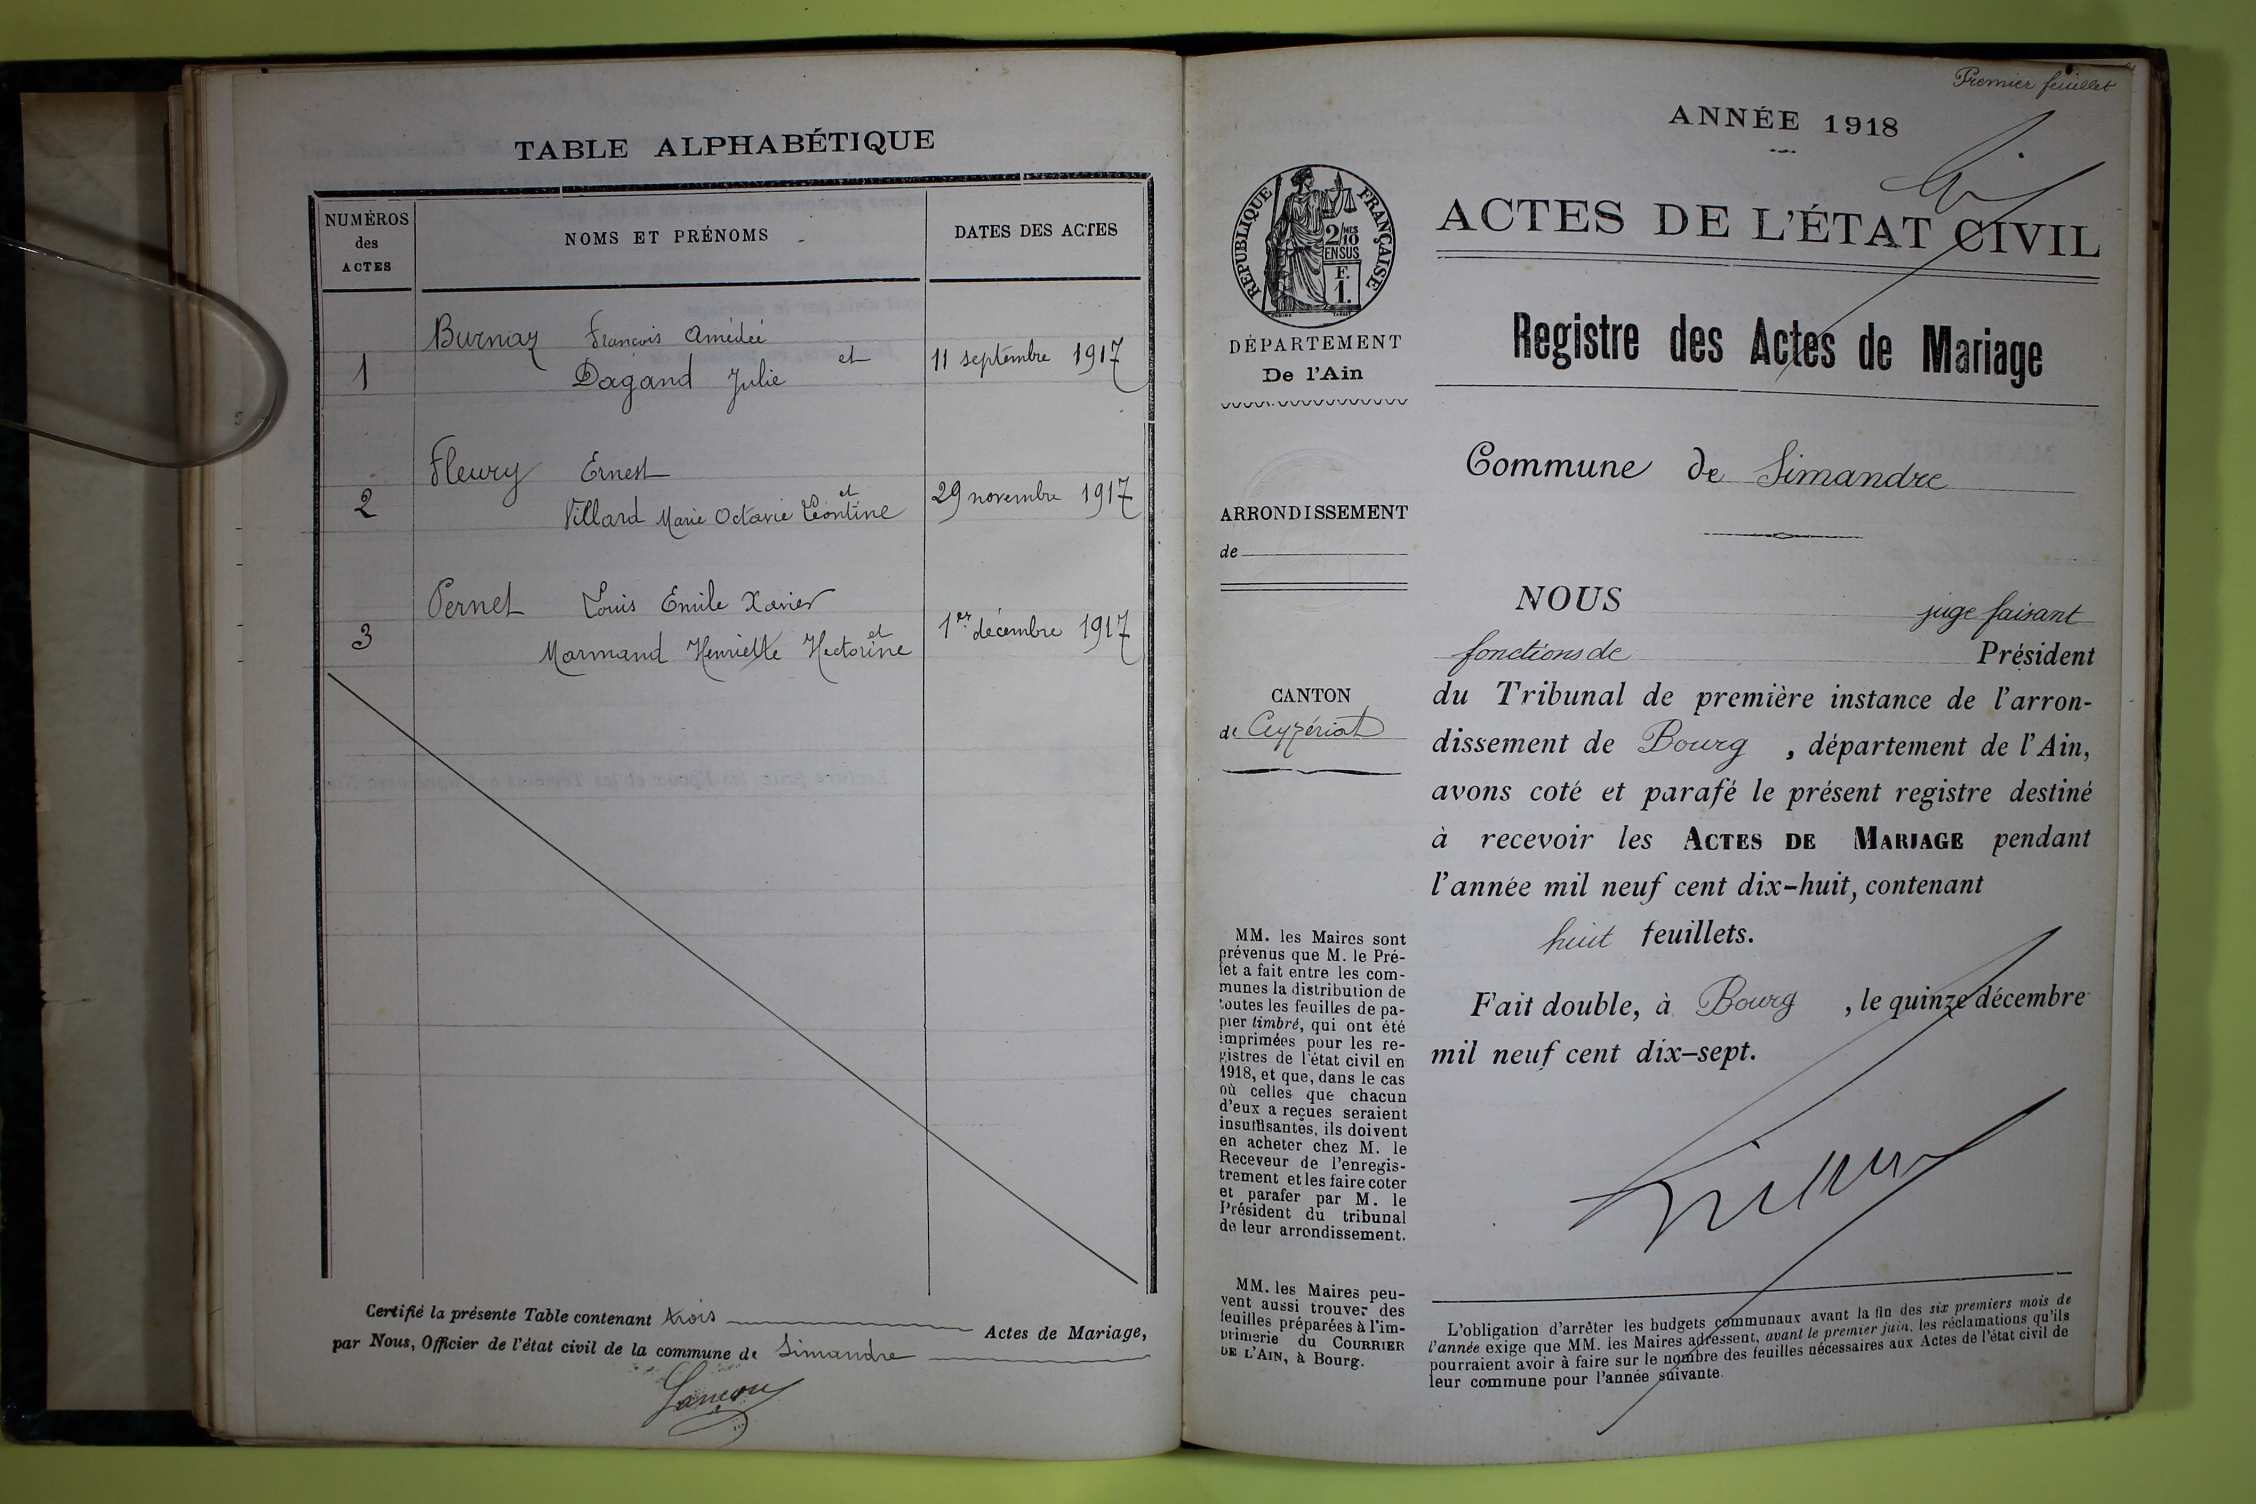 TABLE ALPHABÉTIQUE
NUMÉROS
des
ACTES
NOMS ET PRÉNOMS
DATES DES ACTES
Burnaz François Amédéé
et
1
Dagand Julie
11 septembre 1917
Fleury Ernest
et
2
Villard Marie Octavie Léontine
29 novembre 1917
Pernet Louis Emile Xavier
et
3
Marmand Henriette Hectorine
1er décembre 1917
Certifié la présente Table contenant trois
Actes de Mariage,
par Nous, Officier de l'état civil de la commune de Simandre
Premier feuillet
ANNÉE 1918
RÉPUBLIQUE FRANÇAISE
2/10 MES
EN SUS
F.
1.
ACTES DE L'ÉTAT CIVIL
DÉPARTEMENT
De l'Ain
Registre des Actes de Mariage
Commune de Simandre
ARRONDISSEMENT
de
CANTON
de Ceyzériat
NOUS juge faisant
fonctions de Président
du Tribunal de première instance de l'arron-
dissement de Bourg , département de l'Ain,
avons coté et parafé le présent registre destiné
à recevoir les ACTES DE MARIAGE pendant
l'année mil neuf cent dix-huit, contenant
huit feuillets.
Fait double, à Bourg , le quinze décembre
mil neuf cent dix-sept.
MM. les Maires sont
prévenus que M. le Pré-
fet a fait entre les com-
munes la distribution de
toutes les feuilles de pa-
pier timbré, qui ont été
imprimées pour les re-
gistres de l'état civil en
1918, et que, dans le cas
où celles que chacun
d'eux a reçues seraient
insuffisantes, ils doivent
en acheter chez M. le
Receveur de l'enregis-
trement et les faire coter
et parafer par M. le
Président du tribunal
de leur arrondissement.
MM. les Maires peu-
vent aussi trouver des
feuilles préparées à l'im-
primerie du COURRIER
DE L'AIN, à Bourg.
L'obligation d'arrêter les budgets communaux avant la fin des six premiers mois de
l'année exige que MM. les Maires adressent, avant le premier juin, les réclamations qu'ils
pourraient avoir à faire sur le nombre des feuilles nécessaires aux Actes de l'état civil de
leur commune pour l'année suivante.